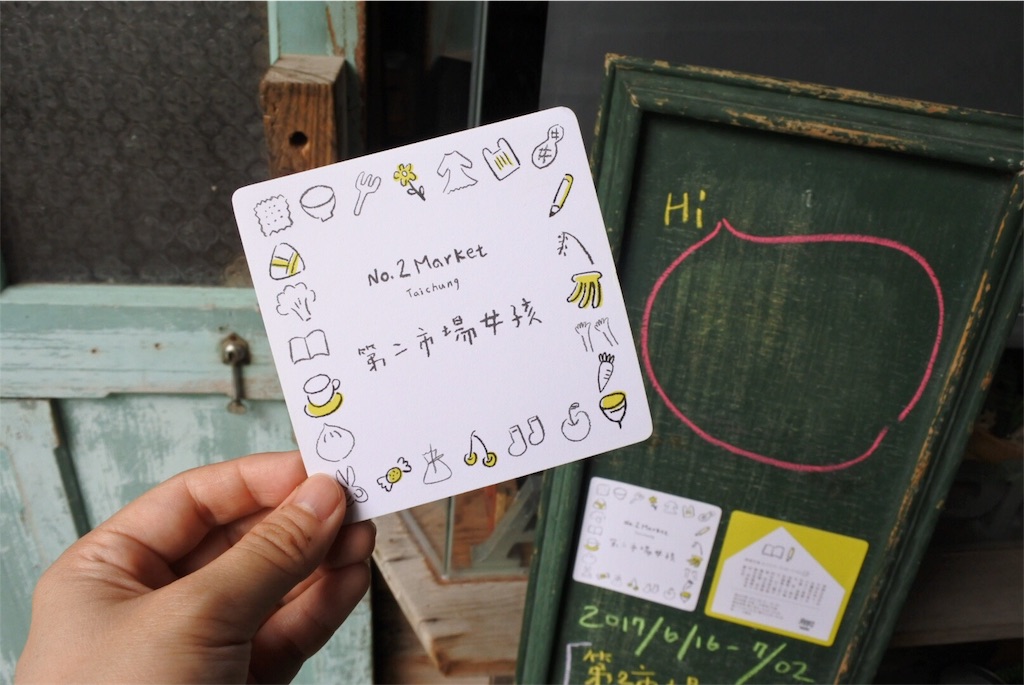 No. 2 Market
Taichung
第二市場女孩
Hi
No. 2 Market
第二市場女孩
2017/6/16 - 7/02
第2市場